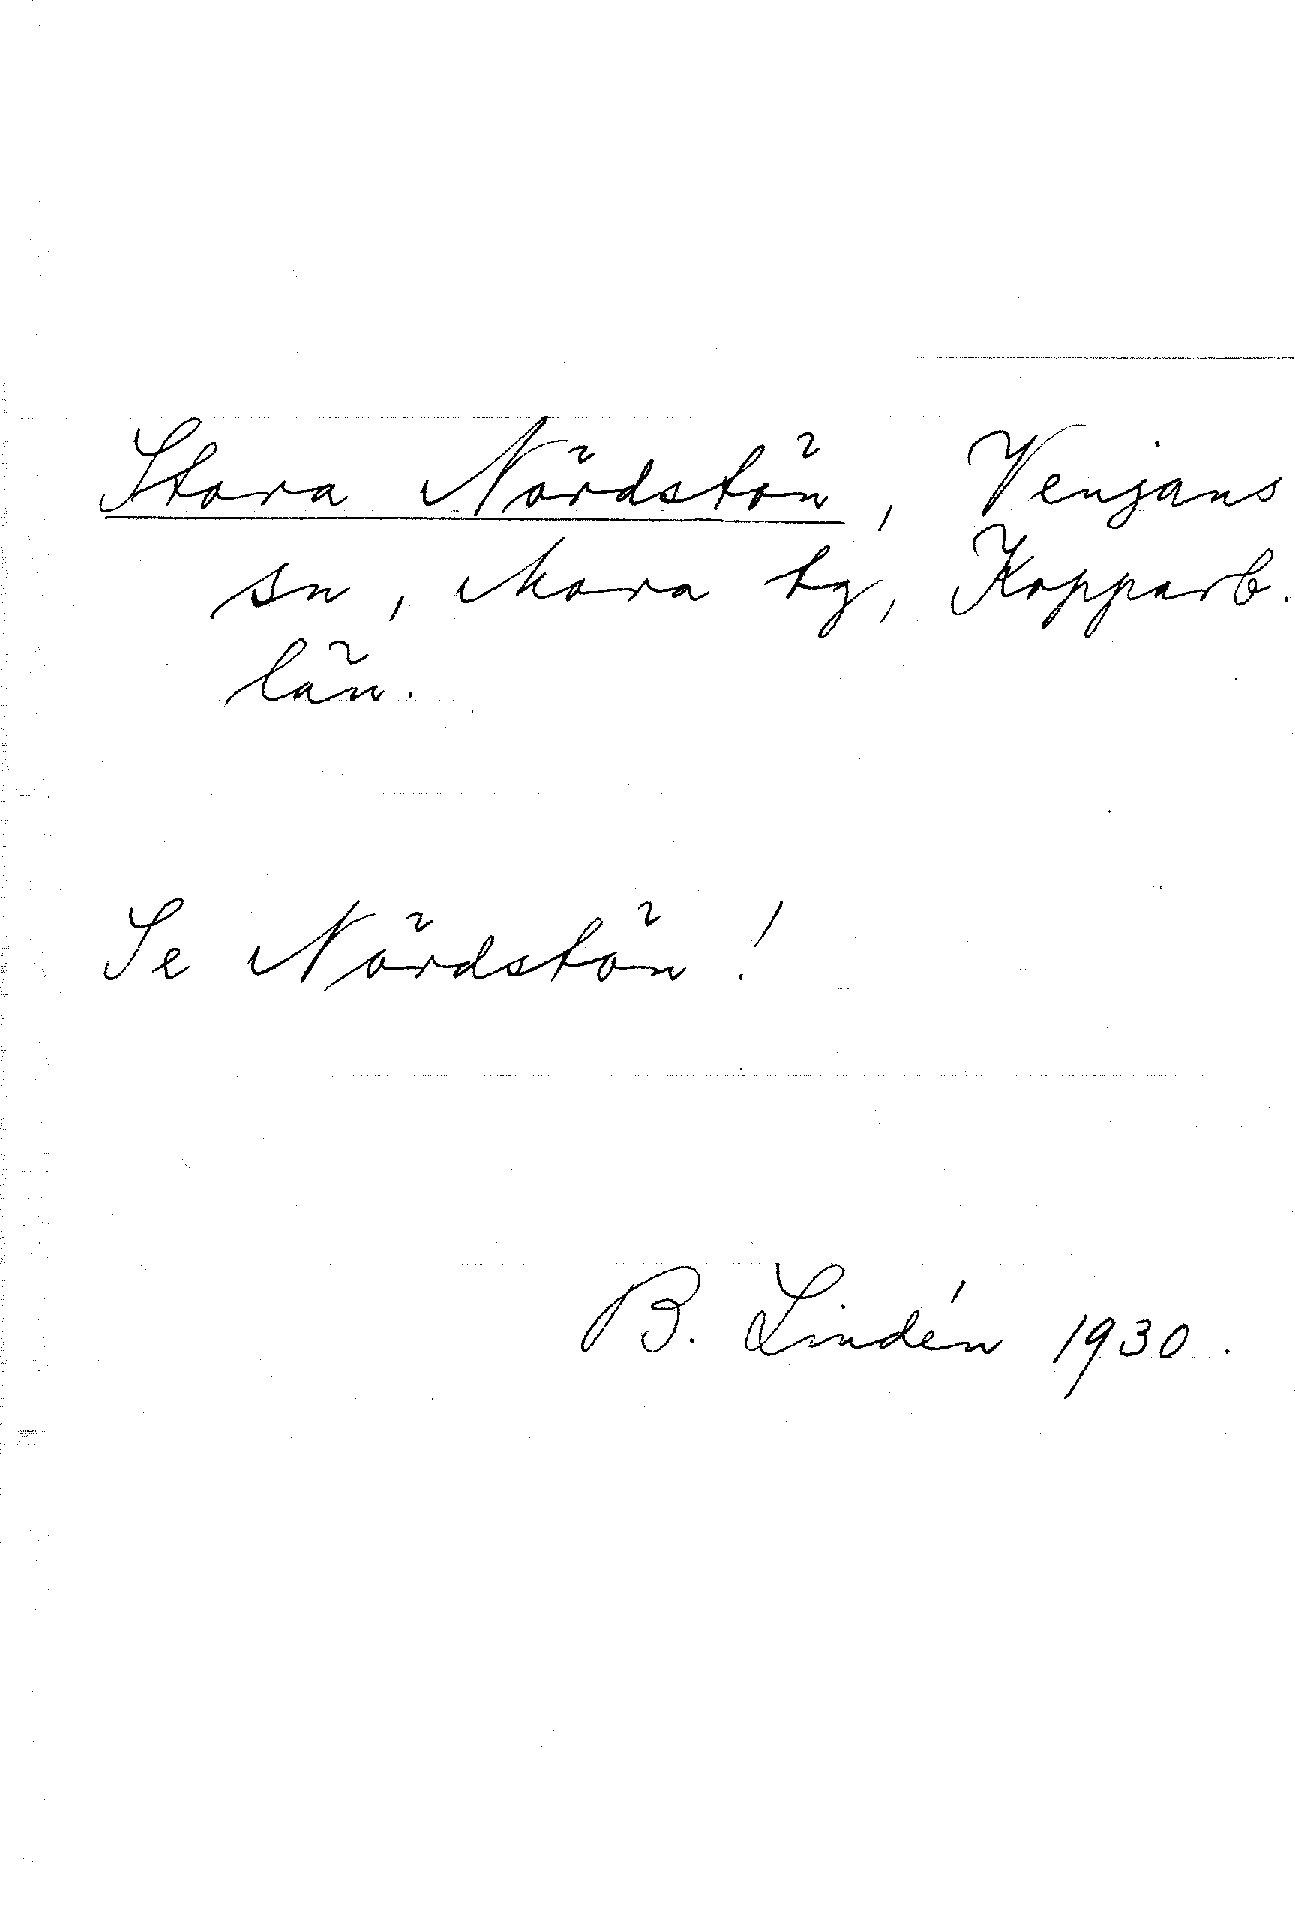 Stora Nördstön, Venjans
sn, Mora tg, Kopparb.
län.
Se Nördstön!
B. Lindén 1930.